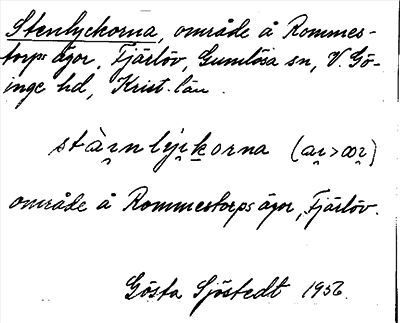 Stenlyckorna, område å Rommes-
torps ägor, Fjärlöv, Gumlösa sn, V. Gö-
inge hd, Krist. län.
stàɪ̯nlyɪ̯korna (aɪ̯>œɪ̯)
område å Rommestorps ägor, Fjärlöv.
Gösta Sjöstedt 1956.